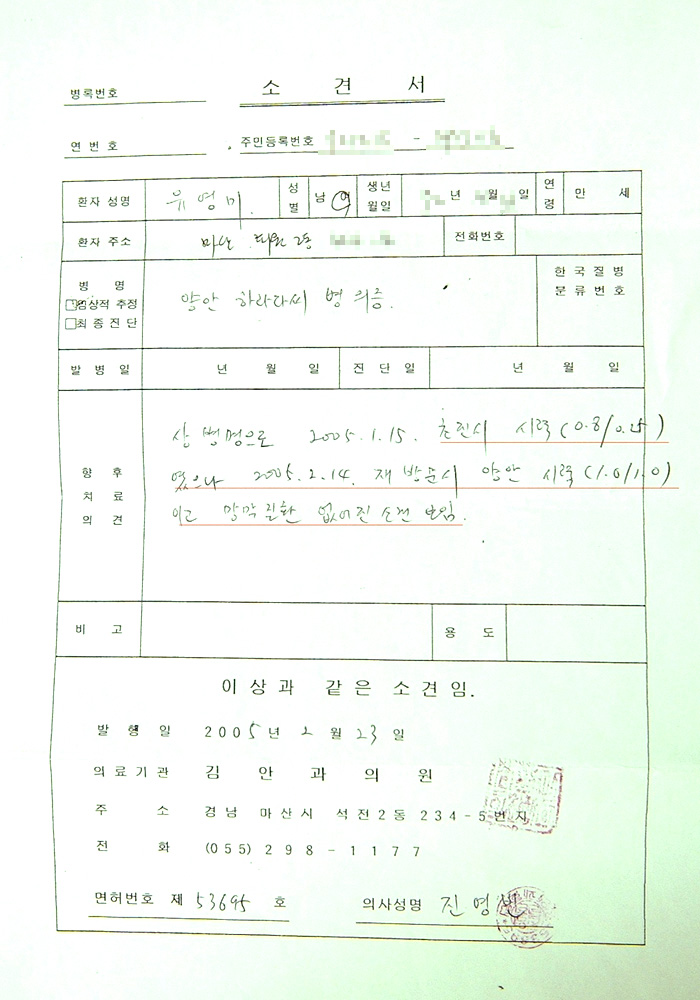 병록번호
소 견 서
연 번 호
주민등록번호 -
환자 성명 유영미 성별 남 여 생년월일 년 월 일 연령 만 세
환자 주소 마산 2동 전화번호
병 명
임상적 추정
최종진단
양안 하라다씨 병 의증.
한국질병
분류번호
발 병 일 년 월 일 진 단 일 년 월 일
향 후
치 료
의 견
상 병명으로 2005.1.15. 초진시 시력(0.8/0.25)
였으나 2005.2.14. 재 방문시 양안 시력(1.0/1.0)
이고 망막질환 없어진 소견 보임.
비 고 용 도
이상과 같은 소견임.
발 행 일 2005년 2월 23일
의료기관 김 안 과 의 원
주 소 경남 마산시 석전2동 234-5번지
전 화 (055) 298-1177
면허번호 제 53695 호
의사성명 진영